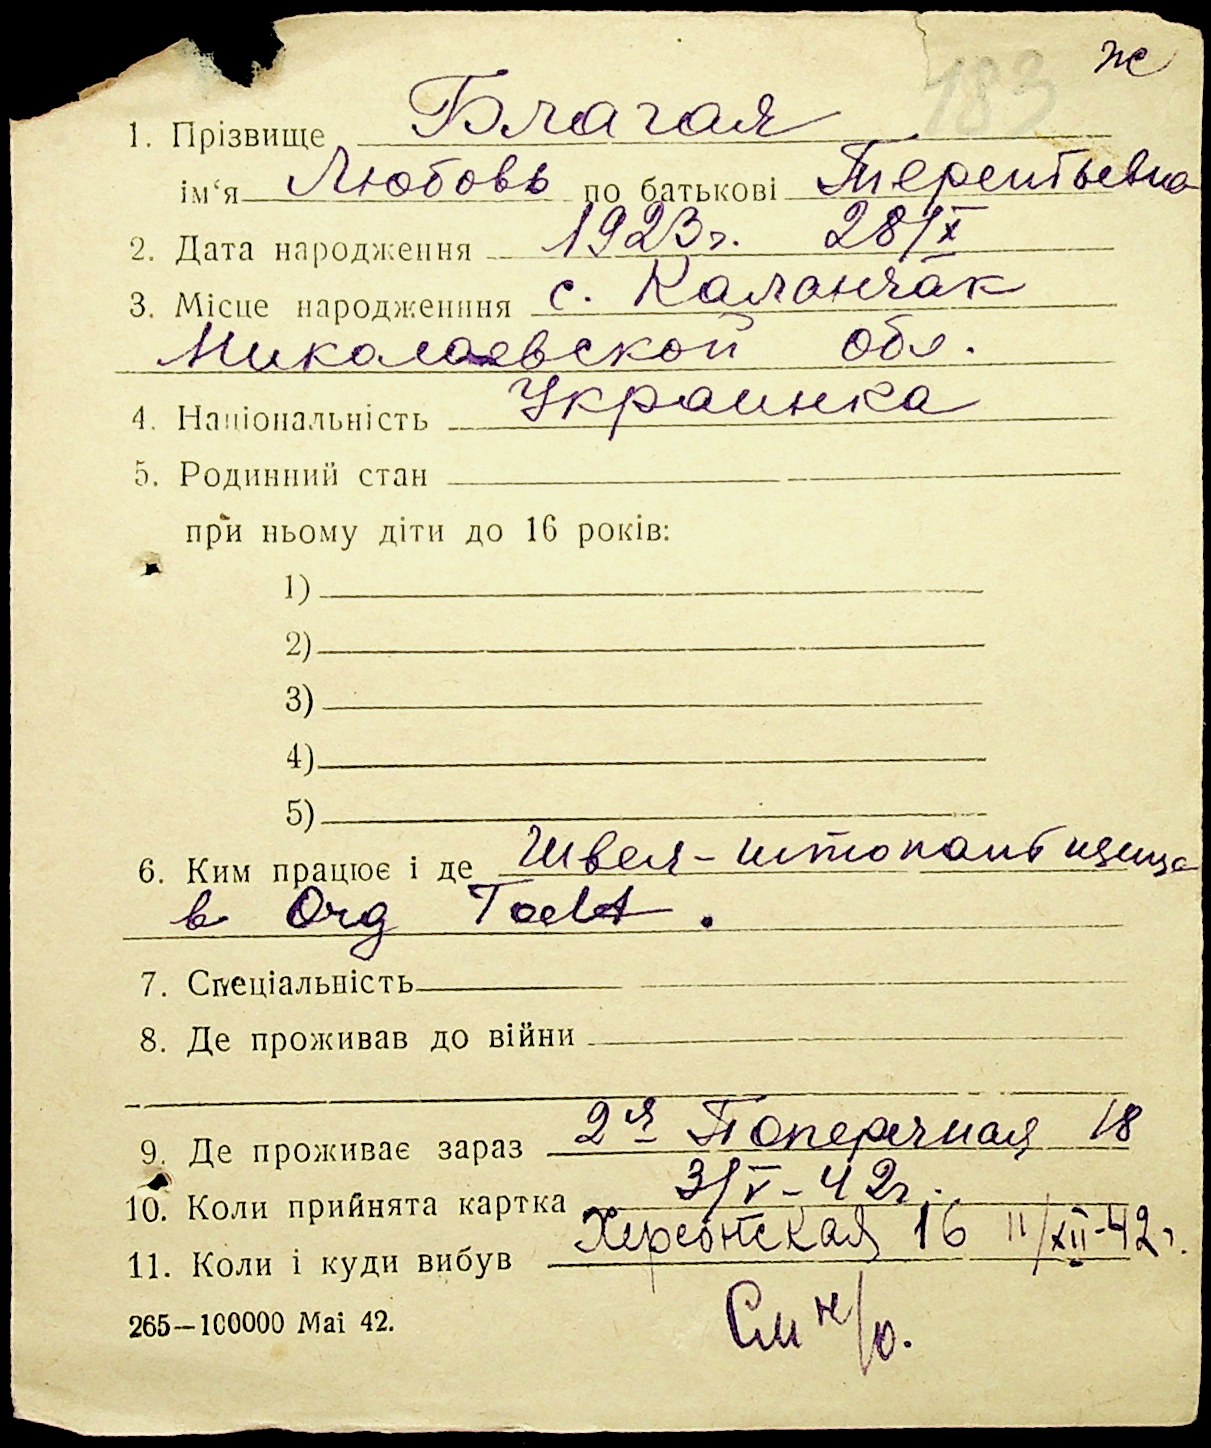 183 ж
1. Прізвище Благая
ім‘я Любовь по батькові Терентьевна
2. Дата народження 1923г. 28/X
3. Місце народженння с. Каланчак
Николаевской обл.
4. Національність Украинка
5. Родинний стан
при ньому діти до 16 років:
1)
2)
3)
4)
5)
6. Ким працює і де Швея-
в Org Todt.
7. Спеціальність
8. Де проживав до війни
9. Де проживає зараз 2я Поперечная 18
10. Коли прийнята картка 3/V-42г.
11. Коли і куди вибув Херсонская 16 11/XII-42г.
265—100000 Mai 42.
См н/о.